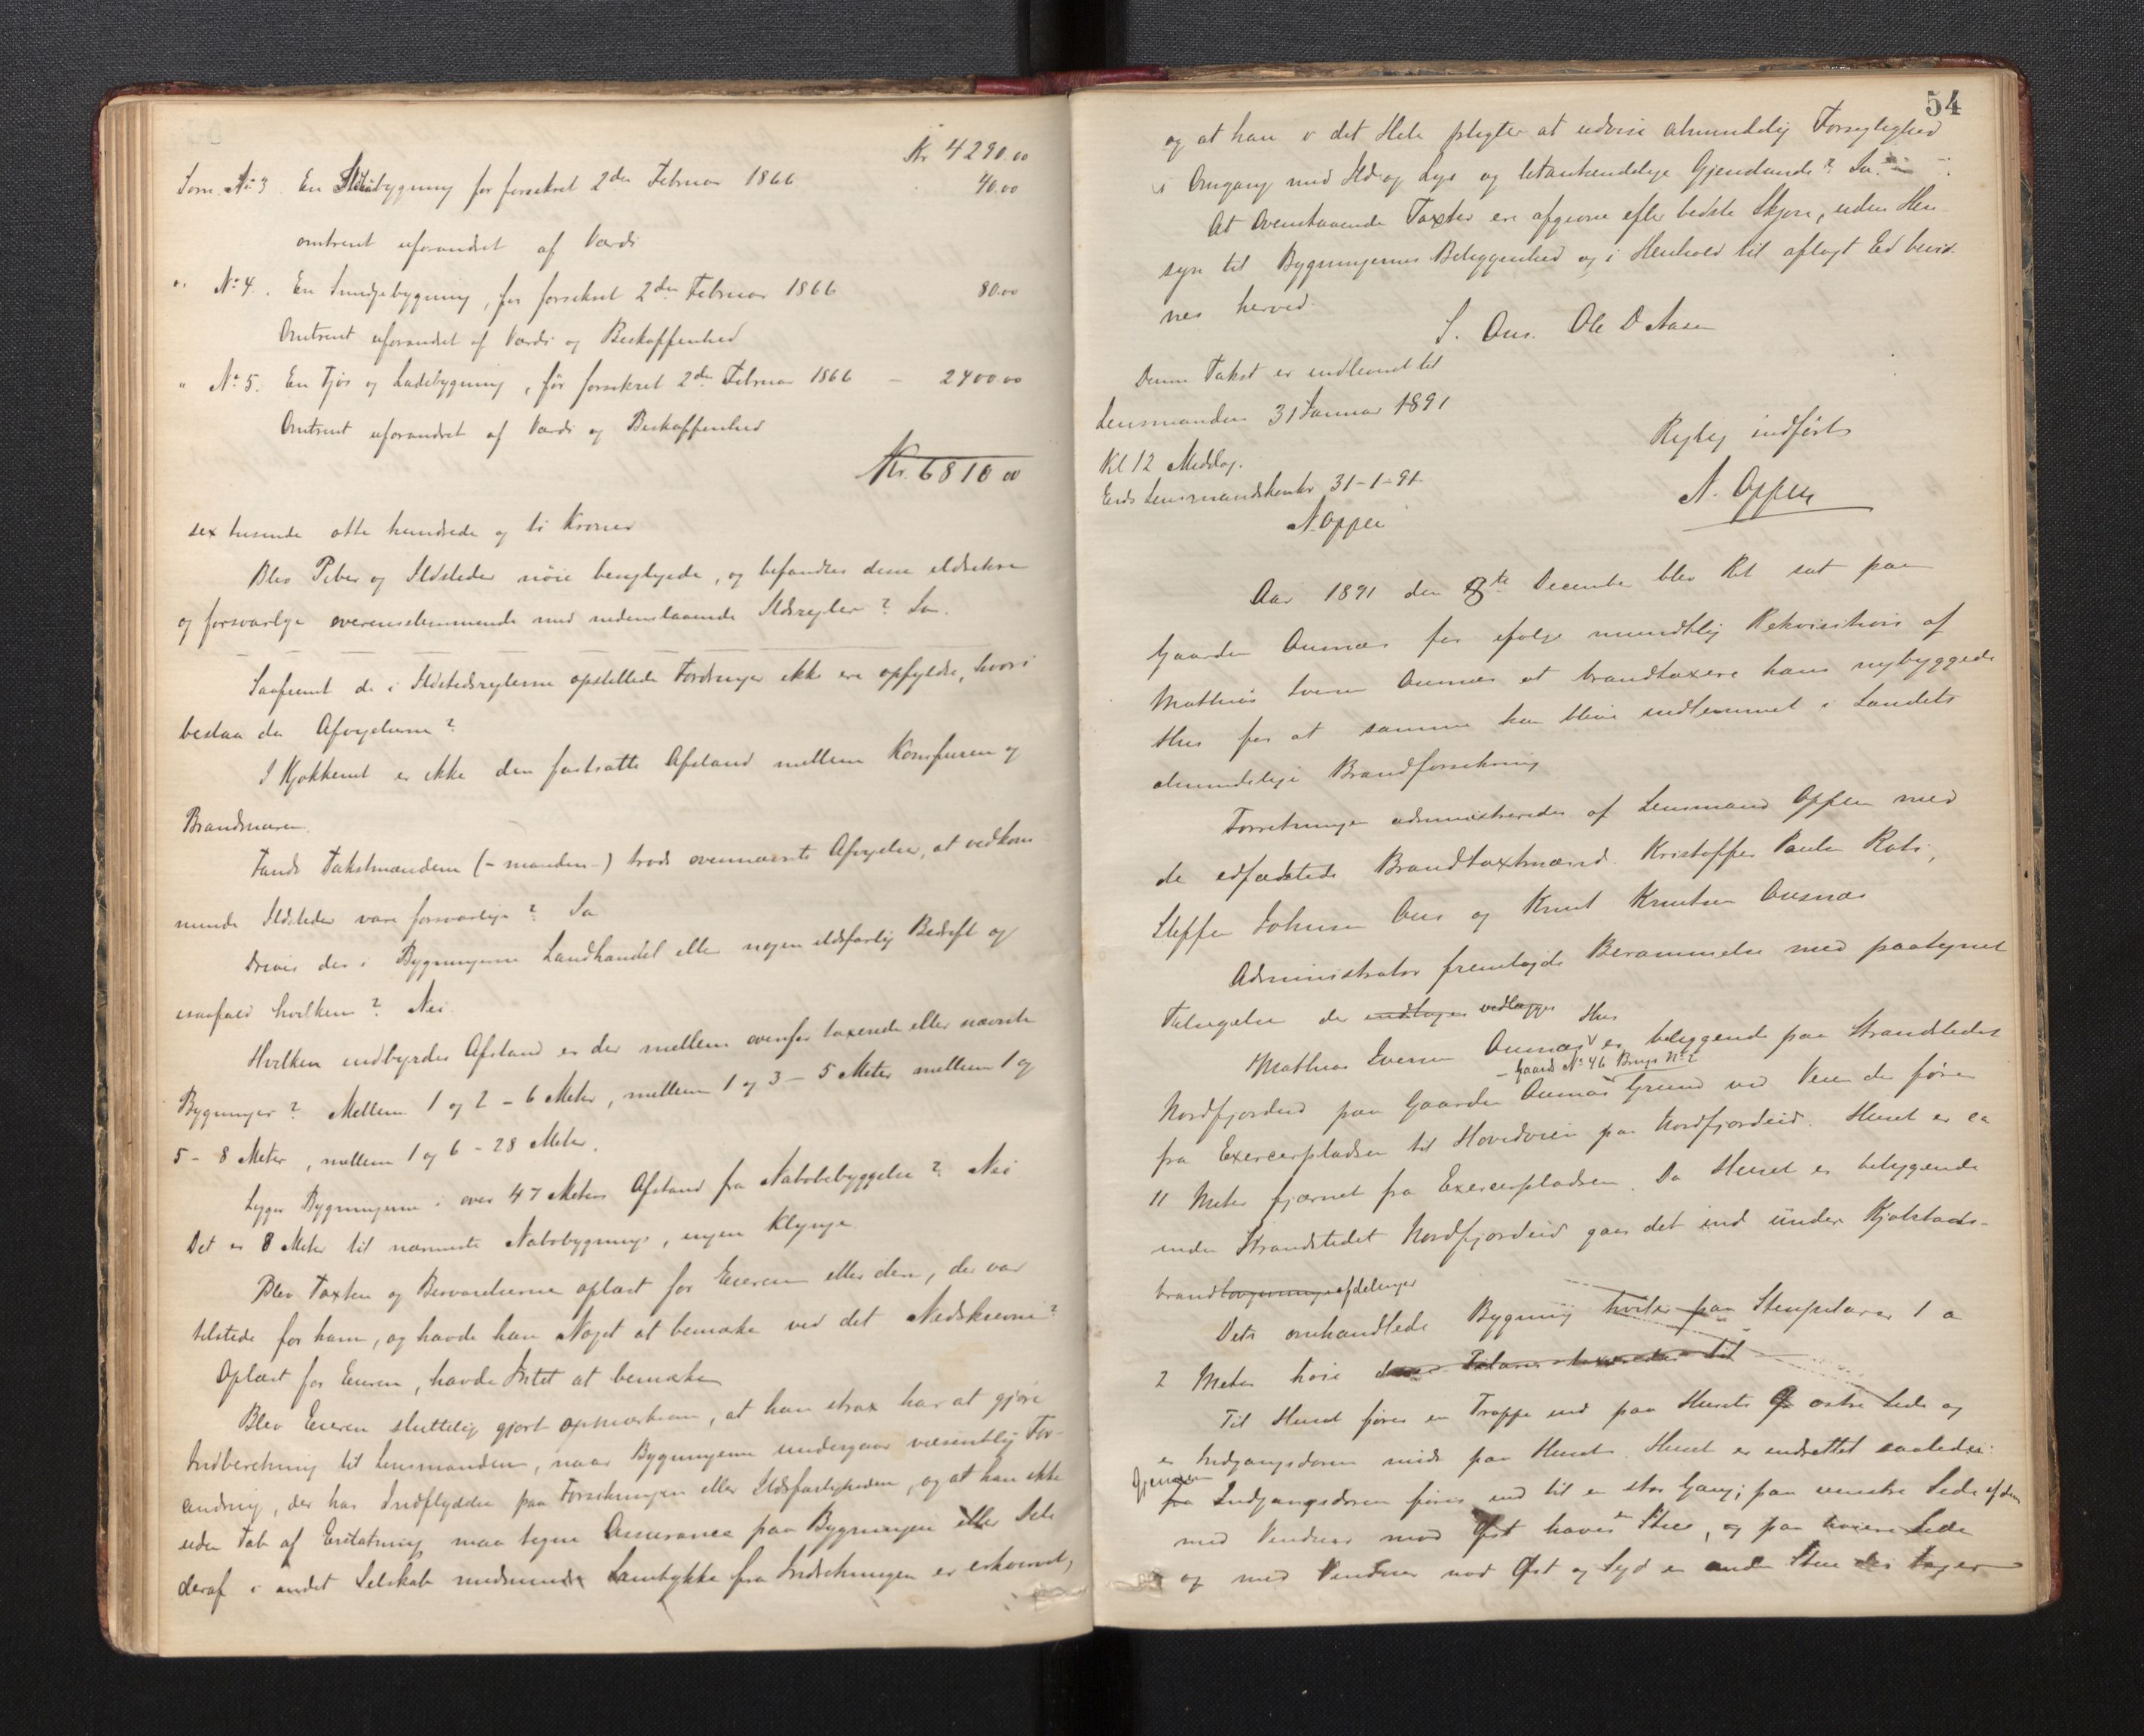 Kr 4290.00
Som No 3. En Skibygning før forsikret 2den Februar 1866 40.00
omtrent uforandret af Værdi
" No 4. En Smidjebygning, før forsikret 2den Februar 1866 80.00
Omtrent uforandret af Værdi og Beskaffenhed
" No 5. En Fjøs og Ladebygning, før forsikret 2den Februar 1866 – 2400 00
Omtrent uforandret af Værdi og Beskaffenhed
Kr. 6810 00
sex tusende otte hundrede og ti Kroner
Blev Piber og Ildsteder nøie besigtigede, og befandtes disse ildsikre
og forsvarlige overensstemmende med nedenstaaende Ildsregler? Ja.
Saafremt de i Ildstedsreglerne opstillede Fordringer ikke ere opfyldte, hvori
bestaa da Afvigelserne?
I Kjøkkenet er ikke den fastsatte Afstand mellem Komfuren og
Brandmuren.
Fandt Takstmændene (-manden-) trods ovennævnte Afvigelse, at vedkom
mende Ildsteder vare forsvarlige? Ja
Drives der i Bygningerne Landhandel eller nogen ildsfarlig Bedrift og
isaafald hvilken? Nei.
Hvilken indbyrdes Afstand er der mellem ovenfor taxerede eller nævnte
Bygninger? Mellem 1 og 2 – 6 Meter, mellem 1 og 3 – 5 Meter mellem 1 og
5 – 8 Meter, mellem 1 og 6 – 28 Meter.
Ligger Bygningerne i over 47 Meters Afstand fra Nabobebyggelse? Nei
Det er 8 Meter til nærmeste Nabobygning, ingen Klynge
Blev Taxten og Besvarelserne oplæst for Eieren eller den, der var
tilstede for ham, og havde han Noget at bemærke ved det Nedskrevne?
Oplæst for Eieren, havde Intet at bemærke
Blev Eieren sluttelig gjort opmærksom, at han strax har at gjøre
Indberetning til Lensmanden, naar Bygningerne undergaar væsentlig For-
andring, der har Indflydelse paa Forsikringen eller Ildsfarligheden, og at han ikke
uden Tab af Erstatning maa tegne Assurance paa Bygningen eller Dele
deraf i andet Selskab medmindre Samtykke fra Indretningen er erhvervet,
54
og at han i det Hele pligter at udvise almindelig Forsigtighed
i Omgang med Ild og Lys og letantændelige Gjenstande? Ja.
At Ovenstaaende Taxter ere afgivne efter bedste Skjøn, uden Hen
syn til Bygningernes Beliggenhed og i Henhold til aflagt Ed bevid-
nes herved.
S. Ous. Ole D Aasen
Denne Takst er indleveret til
Lensmanden 31 Januar 1891
Kl 12 Middag.
Eids Lensmandskontor 31–1–91
N. Oppen
Rigtig indført
N. Oppen
Aar 1891 den 8de December blev Ret sat paa
Gaarden Ousnæs før ifølge mundtlig Rekvisition af
Mathias Iversen Ousnæs at brandtaxere hans nybyggede
Hus for at samme kan blive indlemmet i Landets
almindelige Brandforsikring
Forretningen administreredes af Lensmand Oppen med
de edfæstede Brandtaxtmænd Kristoffer Paulsen
Steffen Johnsen Ous og Knut Knutsen Ousnæs
Administrator fremlagde Berammelse med paategnet
der indtages vedlægges
Mathias Iversen Ousnæs Hus er beliggende paa Strandstedet
– Gaards No 46 Brugs No 2
Nordfjordeid paa Gaarden Ousnæs Grund ved Veien der fører
fra Exercerpladsen til Hovedveien paa Nordfjordeid. Huset er ca
11 Meter fjærnet fra Exercerpladsen. Da Huset er beliggende
inden Strandstedet Nordfjordeid gaar det ind under Kjøbstads-
brandbygningsafdelinger
Det omhandlede Bygning hviler paa Stenpilarer 1 a
2 Meter høie disse Pilarer taxeredes til
Til Huset fører en Trappe ind paa Husets østre Side og
er Indgangsdøren midt paa Huset. Huset er indrettet saaledes:
Gjennem
fra Indgangsdøren føres ind til en stor Gang; paa venstre Side af den
med Vinduer mod Øst haves en Stue, og paa høire Side
og med Vinduer mod Øst og Syd er anden Stue der tager